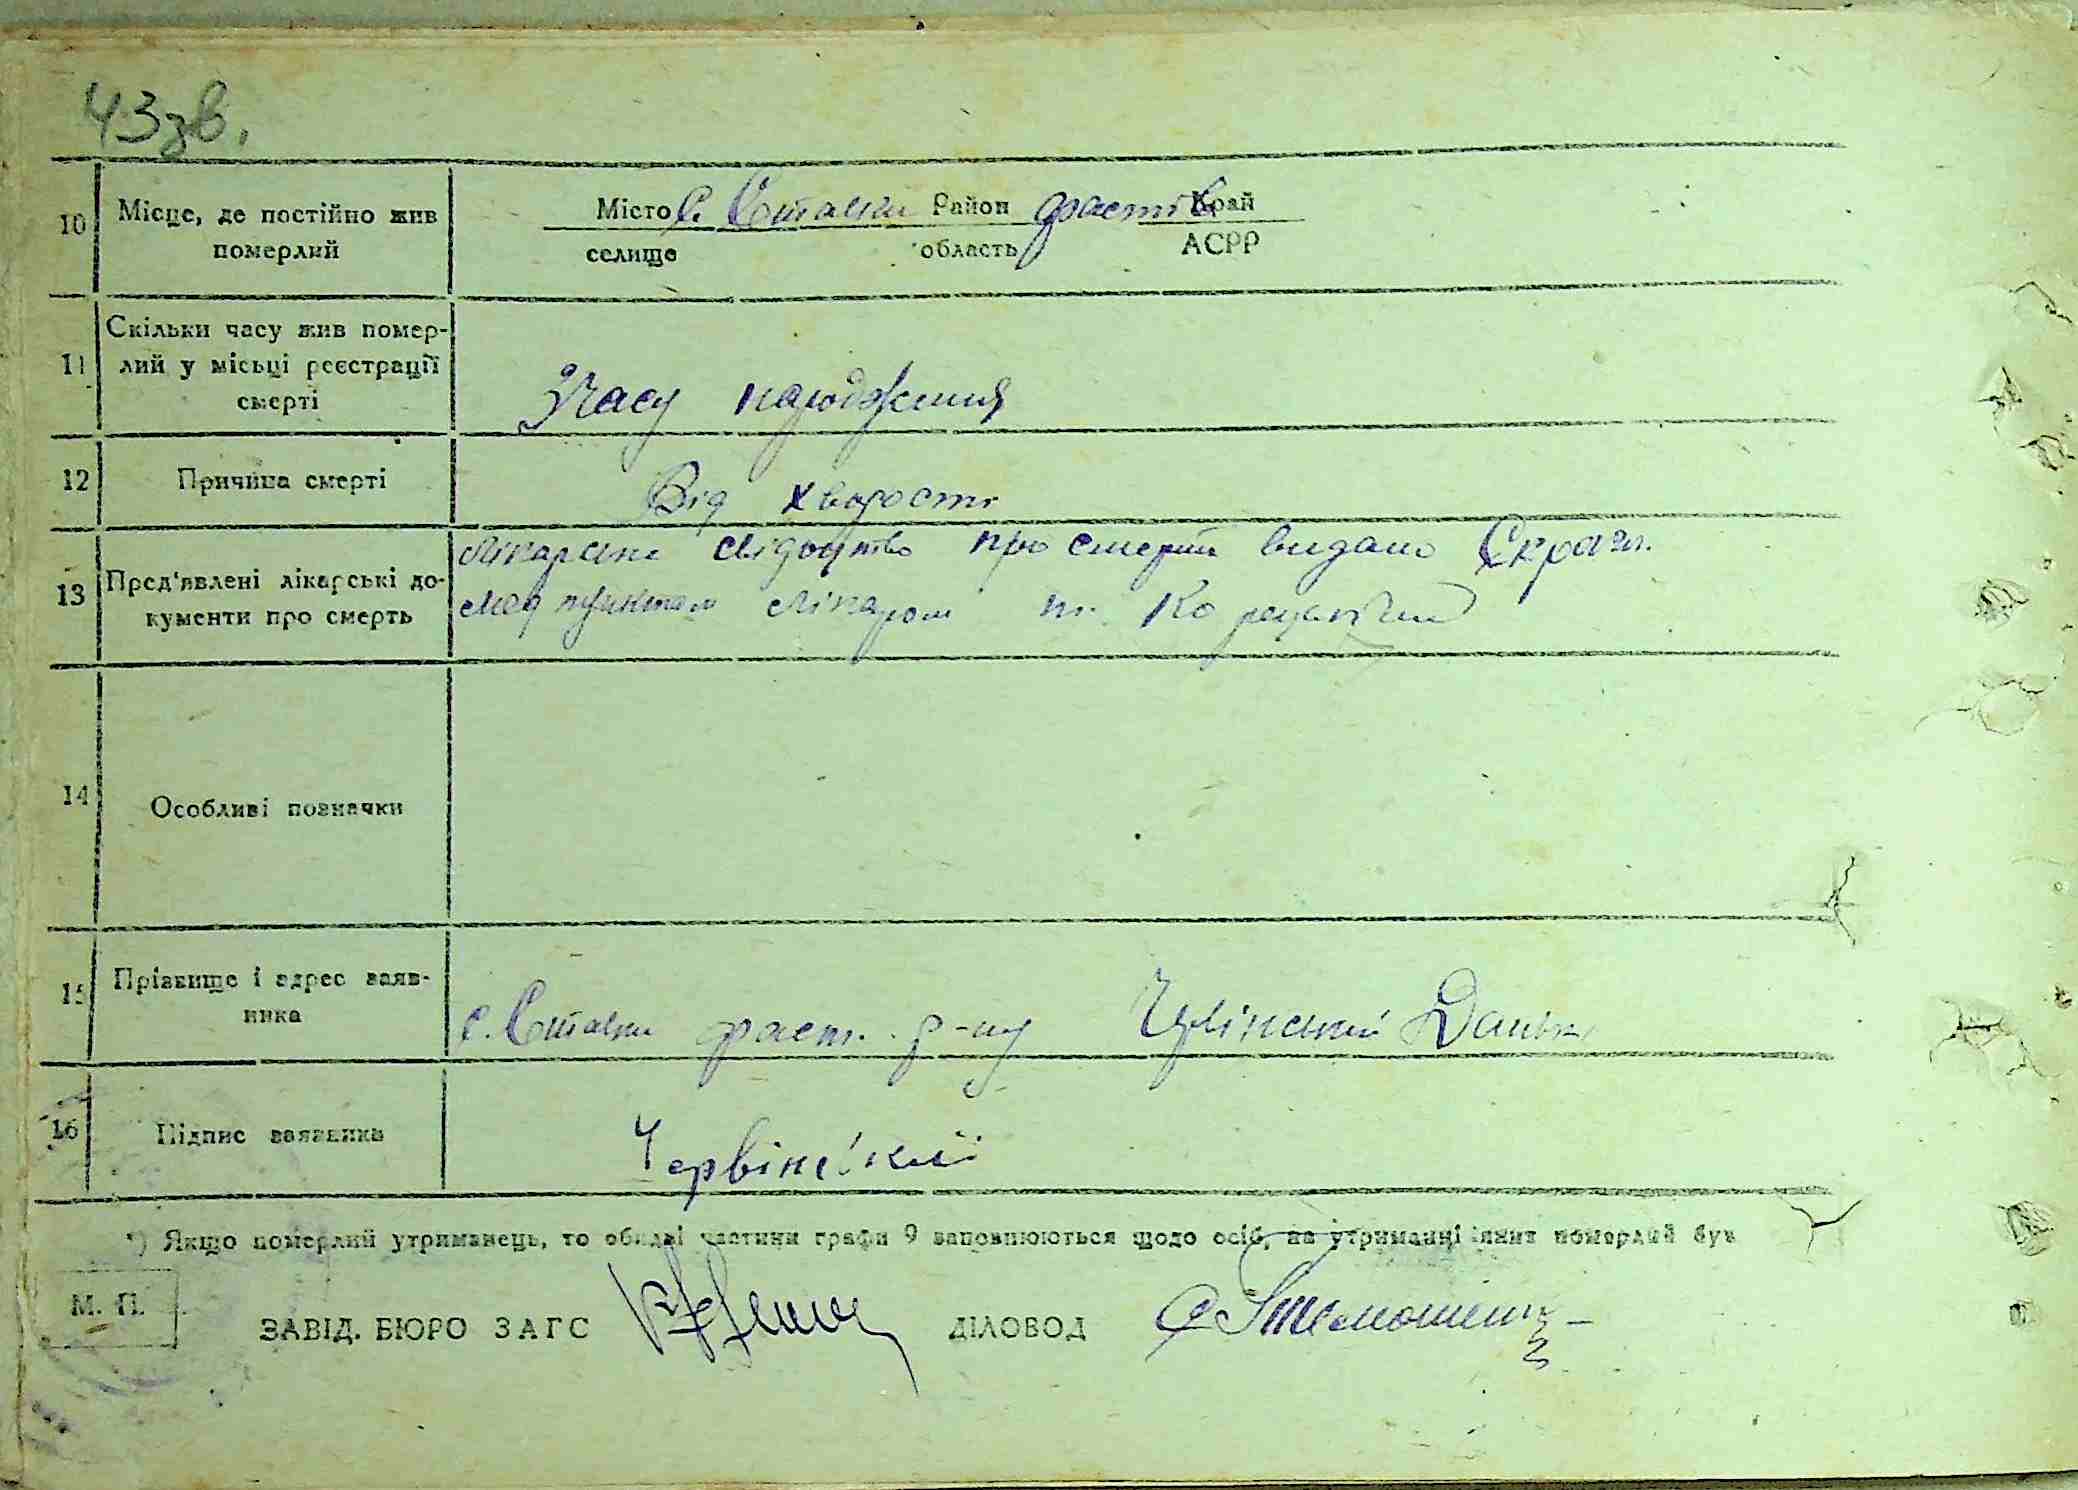 43зв.
10 Місце, де постійно жив померлий
Місто с. Ставки Район Фастів Край
селище область АСРР
11 Скільки часу жив помер-
лий у місьці реєстрації
смерті
Зчасу народження
12 Причина смерті
Від хворости
13 Пред'явлені лікарські до-
кументи про смерть
лікарське свідоцтво про смерть видано
мед пунктом лікаром т.
14 Особливі позначки
15 Прізвище і адрес заяв-
ника
с. Ставки фаст. р-ну Данько
16 Підпис заявника
Червінський
*) Якщо померлий утриманець, то обидві частини графи 9 заповнюються щодо осіб, на утриманні яких померлий був
М. П.
ЗАВІД. БЮРО ЗАГС ДІЛОВОД